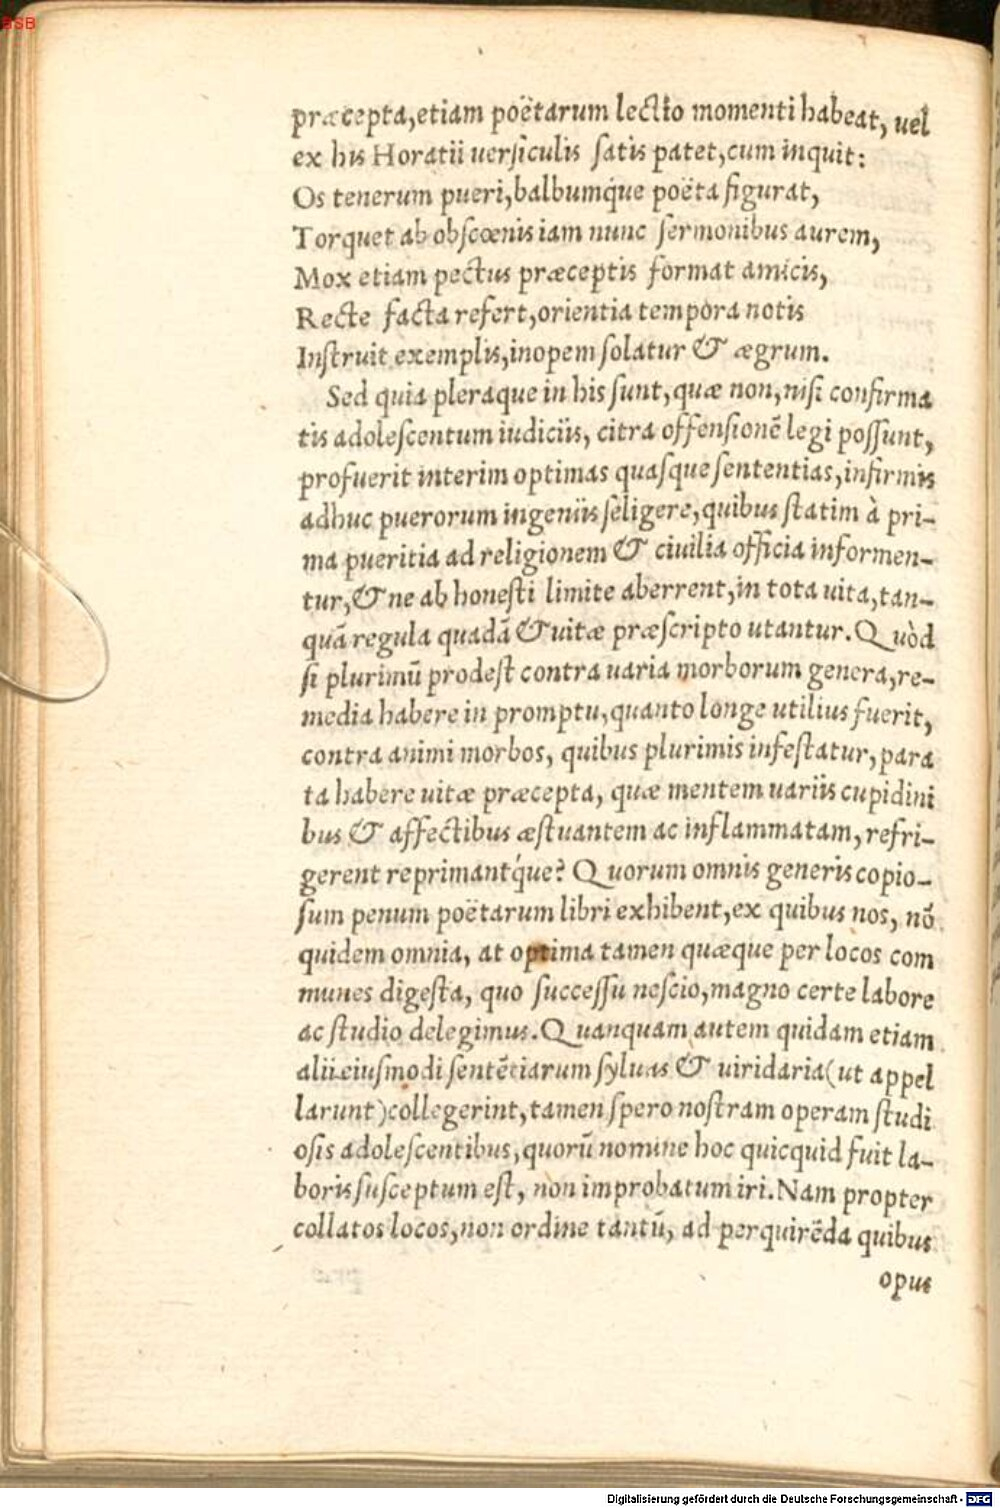 BSB
præcepta,etiam poëtarum lectio momenti habeat, uel
ex his Horatii uersiculis satis patet,cum inquit:
Os tenerum pueri,balbumq́ue poëta figurat,
Torquet ab obscœnis iam nunc sermonibus aurem,
Mox etiam pectus præceptis format amicis,
Recte facta refert,orientia tempora notis
Instruit exemplis,inopem solatur & ægrum.
Sed quia pleraque in his sunt,quæ non,nisi confirma
tis adolescentum iudiciis, citra offensionē legi possunt,
profuerit interim optimas quasque sententias,infirmis
adhuc puerorum ingeniis seligere,quibus statim à pri-
ma pueritia ad religionem & ciuilia officia informen-
tur,& ne ab honesti limite aberrent,in tota uita,tan-
quā regula quadā & uitæ præscripto utantur. Quòd
si plurimū prodest contra uaria morborum genera,re-
media habere in promptu,quanto longe utilius fuerit,
contra animi morbos, quibus plurimis infestatur,para
ta habere uitæ præcepta, quæ mentem uariis cupidini
bus & affectibus æstuantem ac inflammatam,refri-
gerent reprimantq́ue? Quorum omnis generis copio-
sum penum poëtarum libri exhibent,ex quibus nos, nō
quidem omnia, at optima tamen quæque per locos com
munes digesta, quo successu nescio,magno certe labore
ac studio delegimus. Quanquam autem quidam etiam
alii eiusmodi sentētiarum syluas & uiridaria(ut appel
larunt)collegerint,tamen spero nostram operam studi
osis adolescentibus,quorū nomine hoc quicquid fuit la-
boris susceptum est, non improbatum iri. Nam propter
collatos locos,non ordine tantū, ad perquirēda quibus
opus
Digitalisierung gefördert durch die Deutsche Forschungsgemeinschaft - DFG